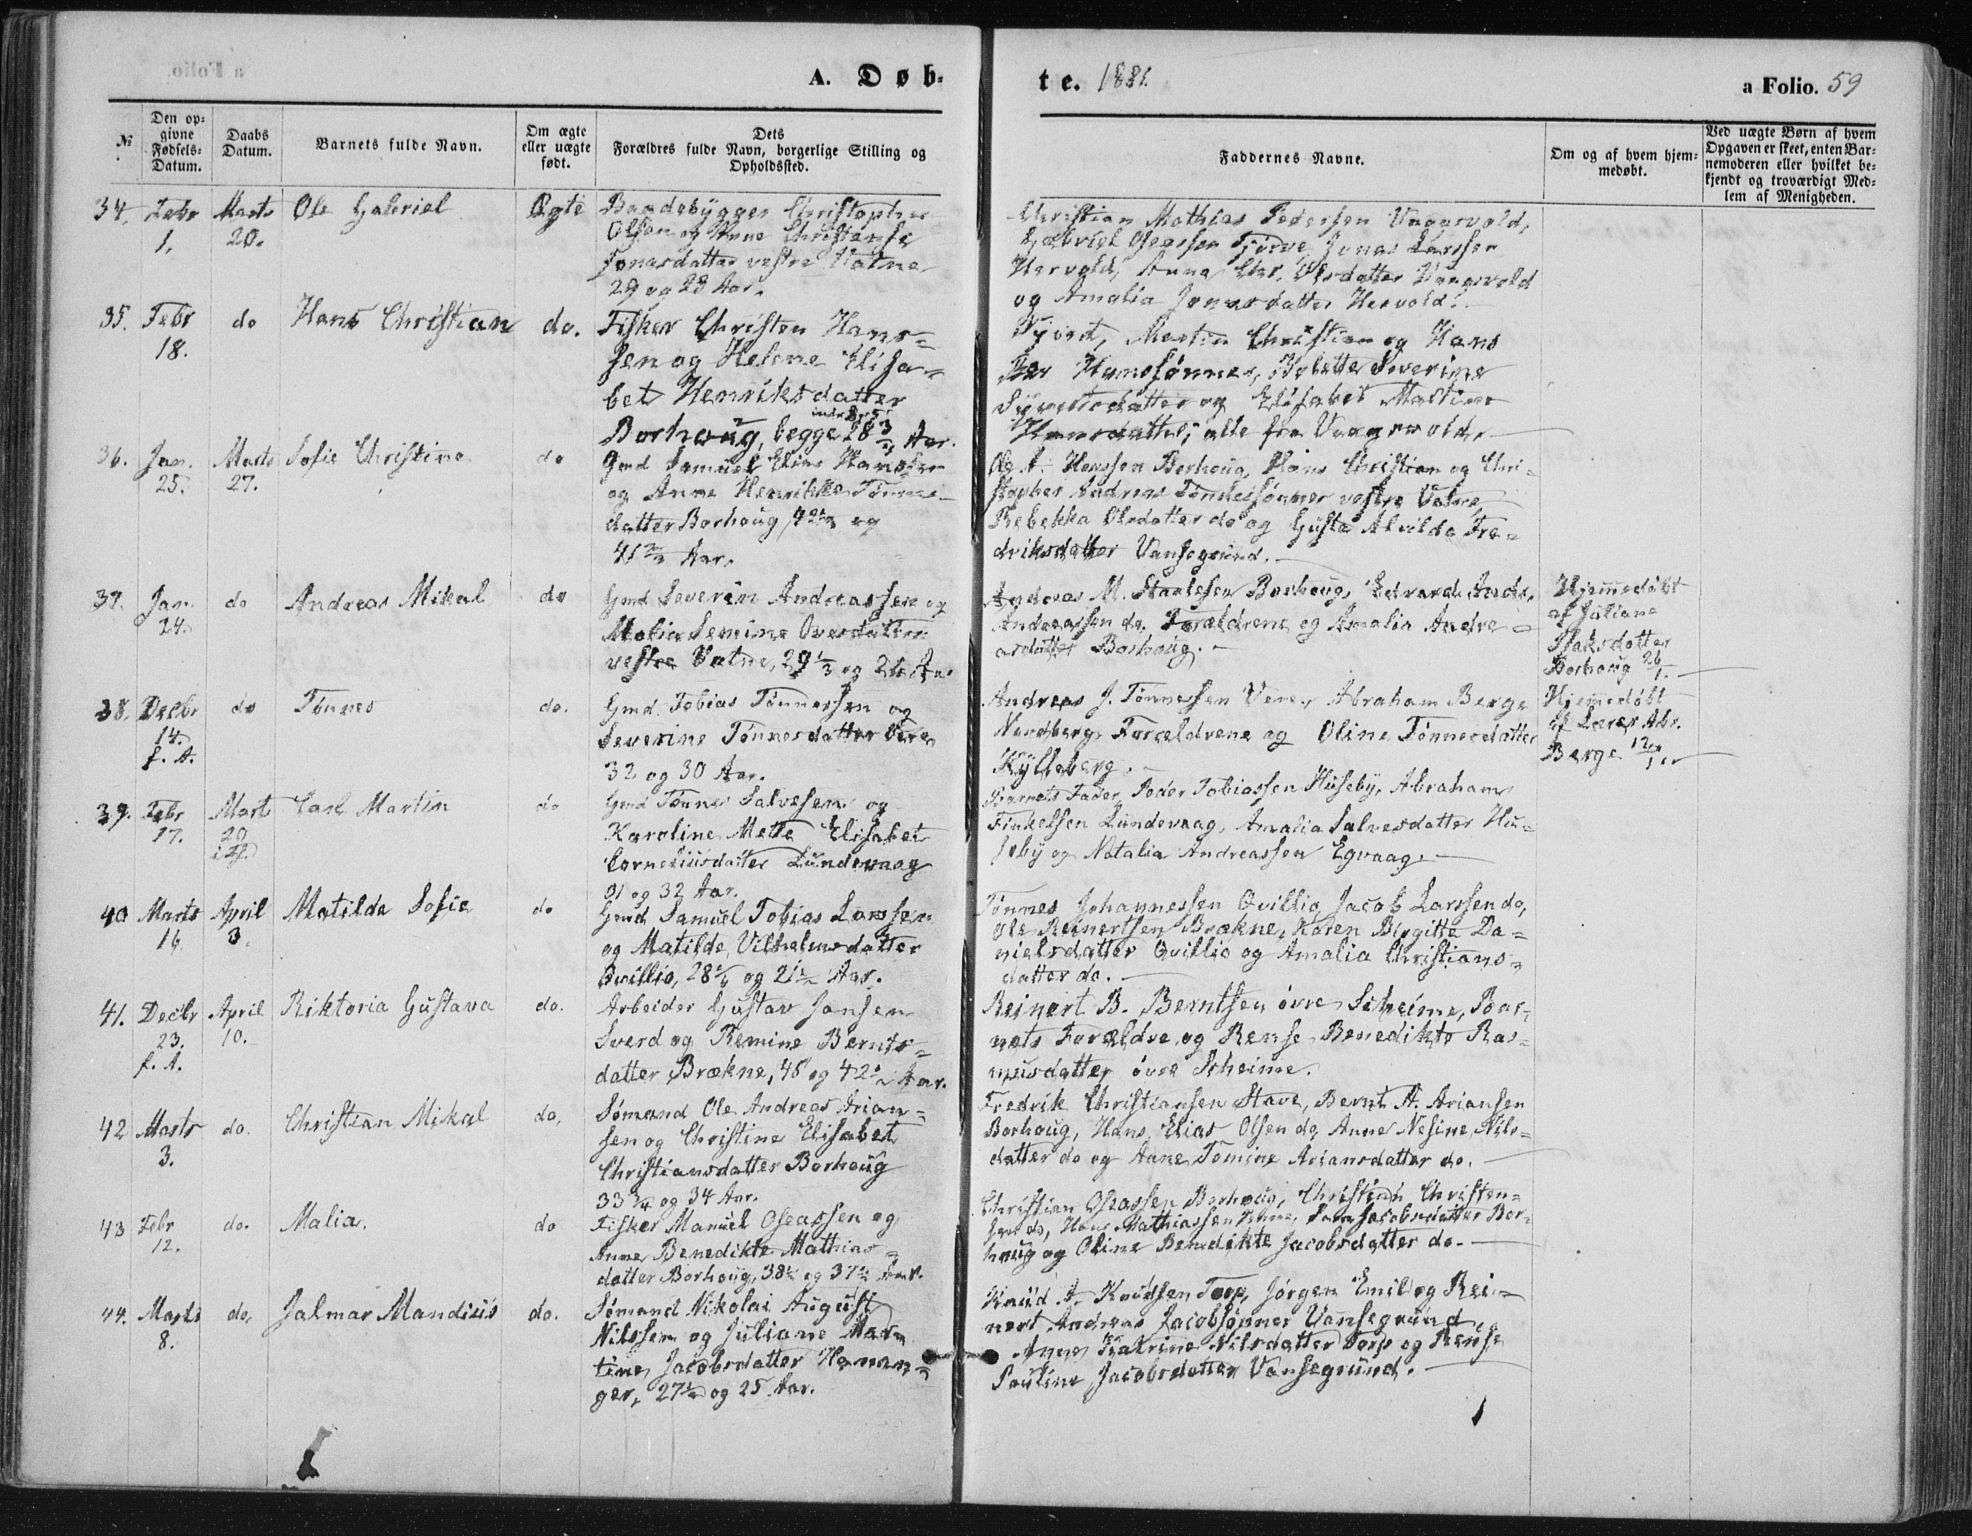 a Folio.
A. Døb-
te. 1881.
a Folio. 59
№
Den op-
givne
Fødsels-
Datum.
Daabs
Datum.
Barnets fulde Navn.
Om ægte
eller uægte
født.
Dets
Forældres fulde Navn, borgerlige Stilling og
Opholdssted.
Faddernes Navne.
Om og af hvem hjem-
medøbt.
Ved uægte Børn af hvem
Opgaven er skeet, enten Bar-
nemoderen eller hvilket be-
kjendt og troværdigt Med-
lem af Menigheden.
34. Febr 1. Marts 20. Ole Gabriel Ægte
Baadsbygger Christopher
Olsen og Anne Christense
Jonasdatter vestre Vatne
29 og 28 Aar.
Christian Mathias Pedersen Vaagsvold,
Gabriel Oseassen Tjørve, Jonas Larssen
Hervold, Anna Chr. Olsdatter Vaagsvold
og Amalia Jonasdatter Hervold.
35. Febr 18. do Hans Christian do.
Fisker Christen Hans-
sen og Helene Elisa-
bet Henriksdatter
Borhoug, begge 28 Aar.
Sivert, Martin Christian og Hans
Hanssønner, Bolette Severine
Sivertsdatter og Elisabet Martine
Hansdatter, alle fra Vaagsvold.
36. Jan. 25. Marts 27. Sofie Christine do
Gmd Samuel Elias Hanssen
og Anne Henrikke Tønnes-
datter Borhoug, 42½ og
41 Aar.
Ole A. Hanssen Borhoug, Hans Christian og Chri-
stopher Andreas Tønnessønner vestre Vatne,
Rebekka Olsdatter do og Gusta Alvilda Fre-
driksdatter Vansegrund.
37. Jan. 24. do Andreas Mikal do
Gmd Severin Andreassen og
Malia Semine Ovesdatter
vestre Vatne, 29⅓ og 26 Aar
Andreas M. Staalesen Borhoug, Edvard Andr.
Andreassen do. Forældrene og Amalia Andre-
asdatter Borhoug.
Hjemmedøbt
af Juliane
Isaksdatter
Borhoug 26/1.
38. Decbr 14. f. A. do Tønnes do.
Gmd. Tobias Tønnessen og
Severine Tønnesdatter Vere
32 og 30 Aar.
Andreas J. Tønnessen Vere, Abraham Berge
Nordberg, Forældrene og Oline Tønnesdatter
Kylleberg.
Hjemmedøbt
af Lærer Abr.
Berge 12/1.
39. Febr 17. Marts 29 Carl Martin do
Gmd Tønnes Salvesen og
Karoline Mette Elisabet
Corneliusdatter Lundevaag
31 og 32 Aar.
Barnets Fader, Peder Tobiassen Huseby, Abraham
Finkelsen Lundevaag, Amalia Salvesdatter Hu-
seby og Natalia Andreassen Egvaag.
40 Marts 16 April 3. Matilde Sofie do
Gmd Samuel Tobias Larssen
og Matilde Vilhelmsdatter
Qvillio, 28¼ og 21½ Aar.
Tønnes Johannessen Qvillio, Jacob Larssen do,
Ole Reinertsen Brækne, Karen Birgitte Da-
nielsdatter Qvillio og Amalia Christians-
datter do.
41. Decbr 23. f. A. April 10. Riktoria Gustava do.
Arbeider Gustav Jansen
Sverd og Remine Bernts-
datter Brækne, 48 og 42½ Aar.
Reinert B. Berntsen øvre Scheime, Bar-
nets Forældre og Rense Benedikte Ras-
musdatter øvre Scheime.
42 Marts 3. do. Christian Mikal do,
Sømand Ole Andreas Arian-
sen og Christine Elisabet
Christiansdatter Borhoug
33¾ og 34 Aar.
Fredrik Christiansen Stave, Bernt A. Ariansen
Borhoug, Hans Elias Olsen do, Anne Nesine Nils-
datter do og Anne Tomine Ariansdatter do.
43 Febr 12. do. Malia. do
Fisker Manuel Oseassen og
Anne Benedikte Mathias-
datter Borhoug, 38½ og 37½ Aar.
Christian Oseassen Borhoug, Christian Christen-
sen do, Hans Mathiassen Jacobsdatter Bor-
houg og Oline Benedikte Jacobsdatter do.
44. Marts 8. do. Jalmar Mandius do.
Sømand Nikolai August
Nilssen og Juliane Mar-
tine Jacobsdatter Hanan-
ger, 27½ og 25 Aar.
Knud A. Knudsen Torp, Jørgen Emil og Rei-
nert Andreas Jacobsønner Vansegrund,
Anne Katrine Nilsdatter Torp og Rense
Pauline Jacobsdatter Vansegrund.